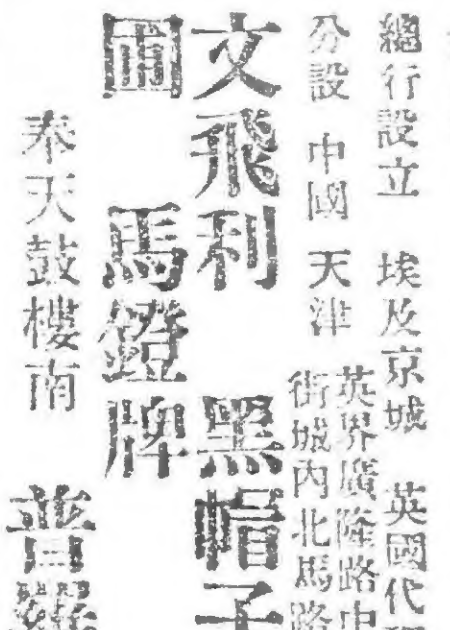 總行設立 埃及京城 英國代
分設 中國 天津 英界廣隆路中
街城內北馬路
文飛利 黑帽子
馬鐙牌
奉天鼓樓南 普